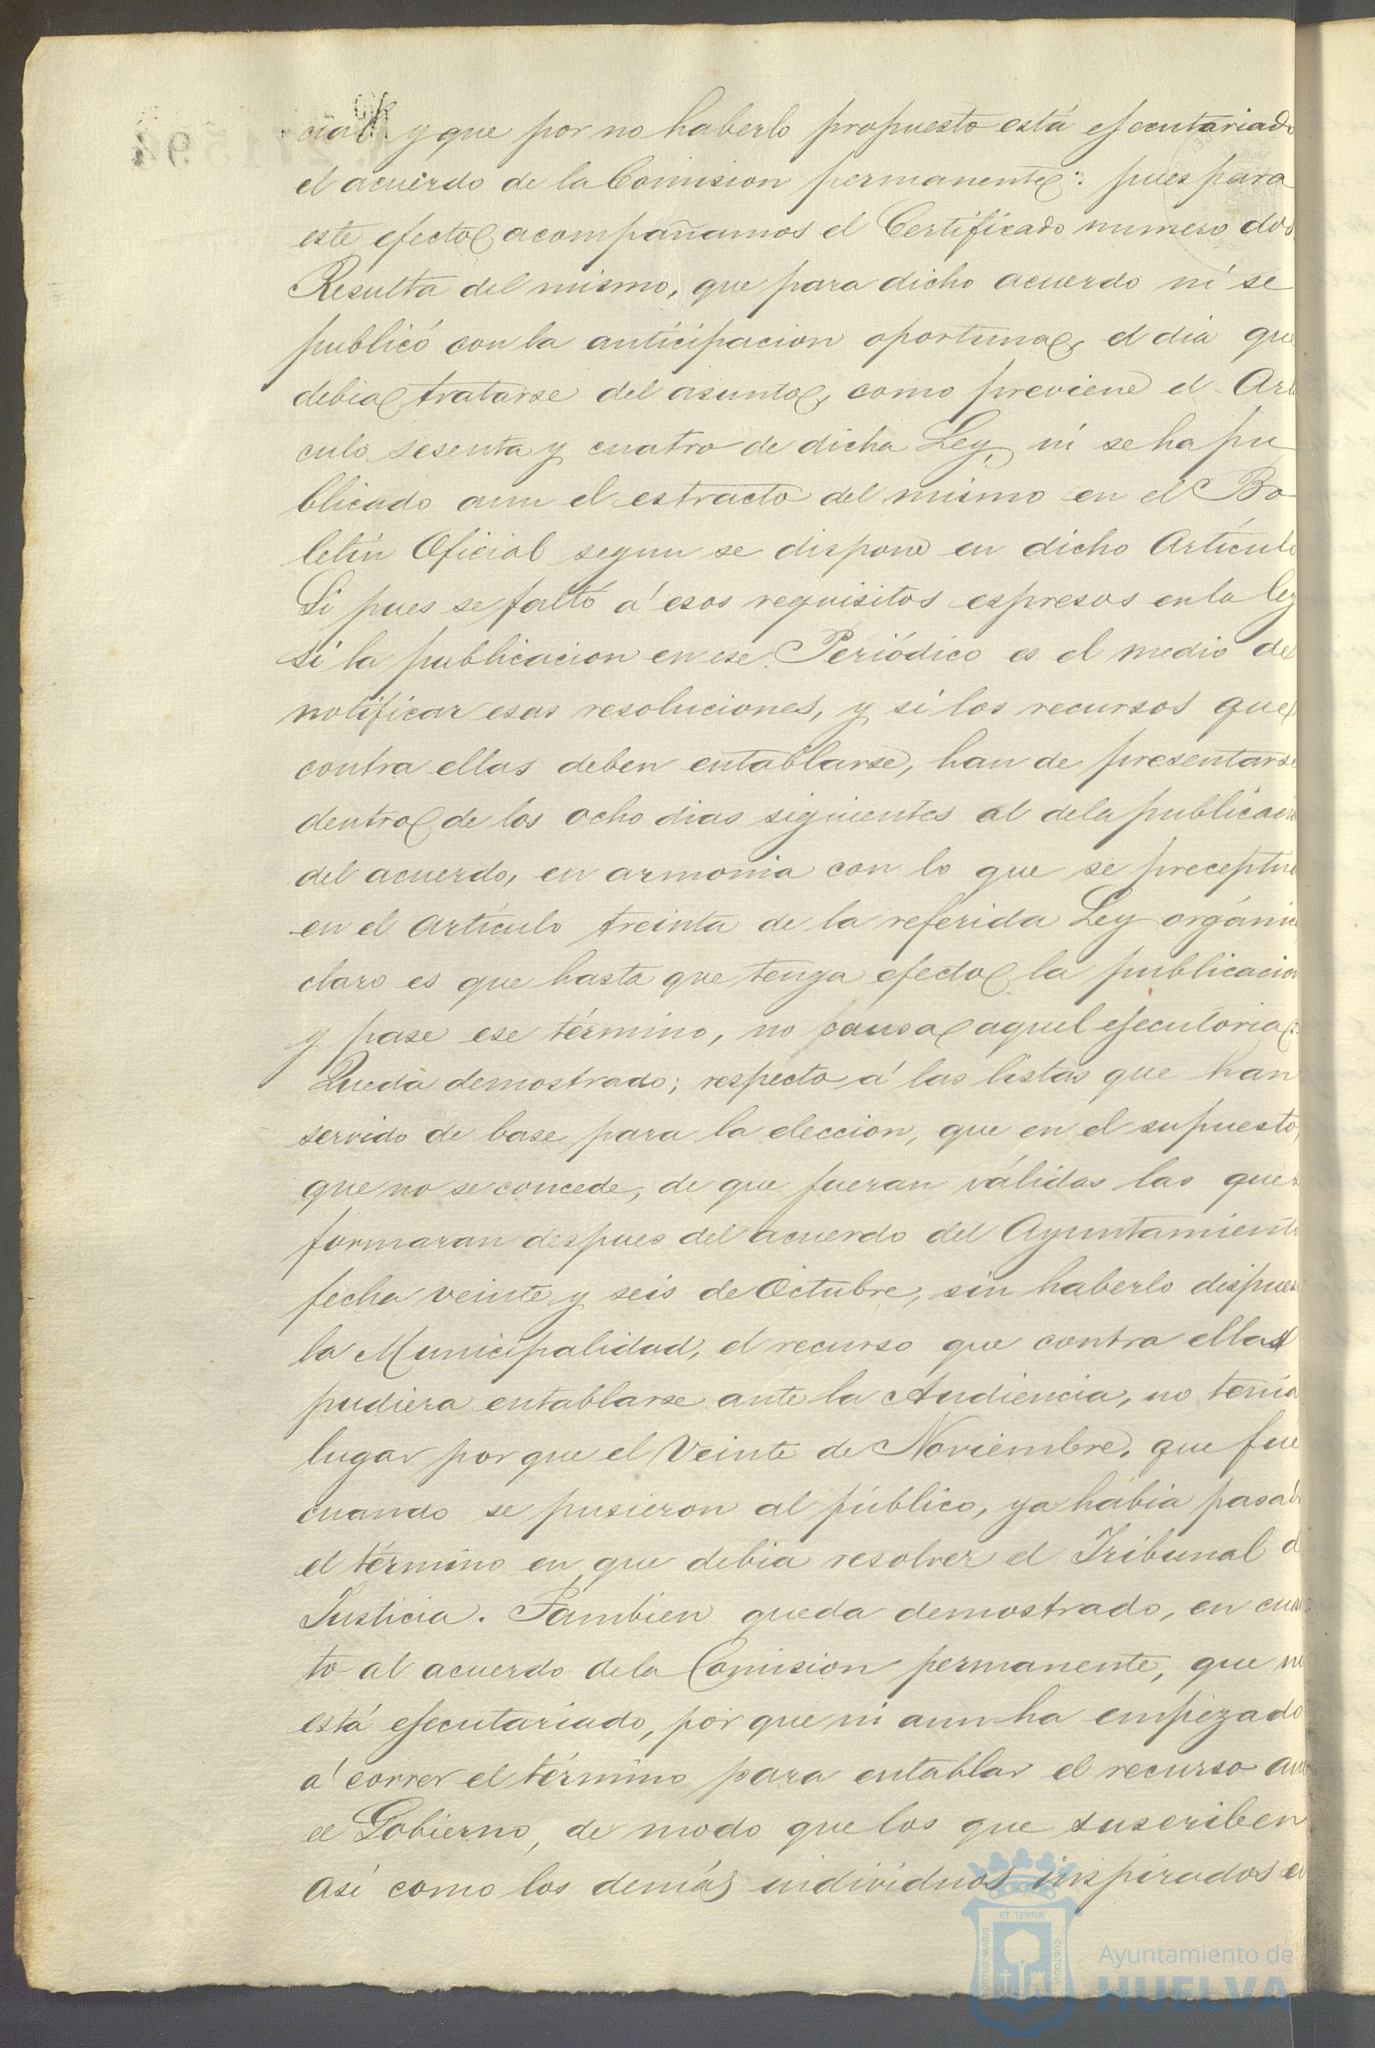 cial y que por no haberlo propuesto está ejecutariado
el acuerdo de la Comision permanente: pues para
este efecto acompañamos el Certificado numero dos
Resulta del mismo, que para dicho acuerdo ni se
publicó con la anticipacion oportuna, el dia que
debia tratarse del asunto, como previene el Arti
culo sesenta y cuatro de dicha Ley, ni se ha pu
blicado aun el estracto del mismo en el Bo
letin Oficial segun se dispone en dicho Artículo
Si pues se faltó á esos requisitos espresos en la ley
si la publicacion en ese Periódico es el medio de
notificar esas resoluciones, y si los recursos que
contra ellas deben entablarse, han de presentarse
dentro de los ocho dias siguientes al de la publicacion
del acuerdo, en armonia con lo que se preceptua
en el Artículo treinta de la referida Ley orgánica
claro es que hasta que tenga efecto la publicacion
y pase ese término, no causa aquel ejecutoria:
Queda demostrado; respecto á las listas que han
servido de base para la eleccion, que en el supuesto,
que no se concede, de que fueran válidas las que
formaran despues del acuerdo del Ayuntamiento
fecha veinte y seis de Octubre, sin haberlo dispues
la Municipalidad, el recurso que contra ellas
pudiera entablarse ante la Audiencia, no tenia
lugar por que el Veinte de Noviembre, que fué
cuando se pusieron al público, ya habia pasado
el término en que debia resolver el Tribunal d
Justicia. Tambien queda demostrado, en cuan
to al acuerdo de la Comision permanente, que no
está ejecutariado, por que ni aun ha empezado
á correr el término para entablar el recurso ante
el Gobierno, de modo que los que suscriben
Asi como los demás individuos inspirados en
PORTUS MARIS ET TERRAE CUSTODIA
Ayuntamiento de
HUELVA